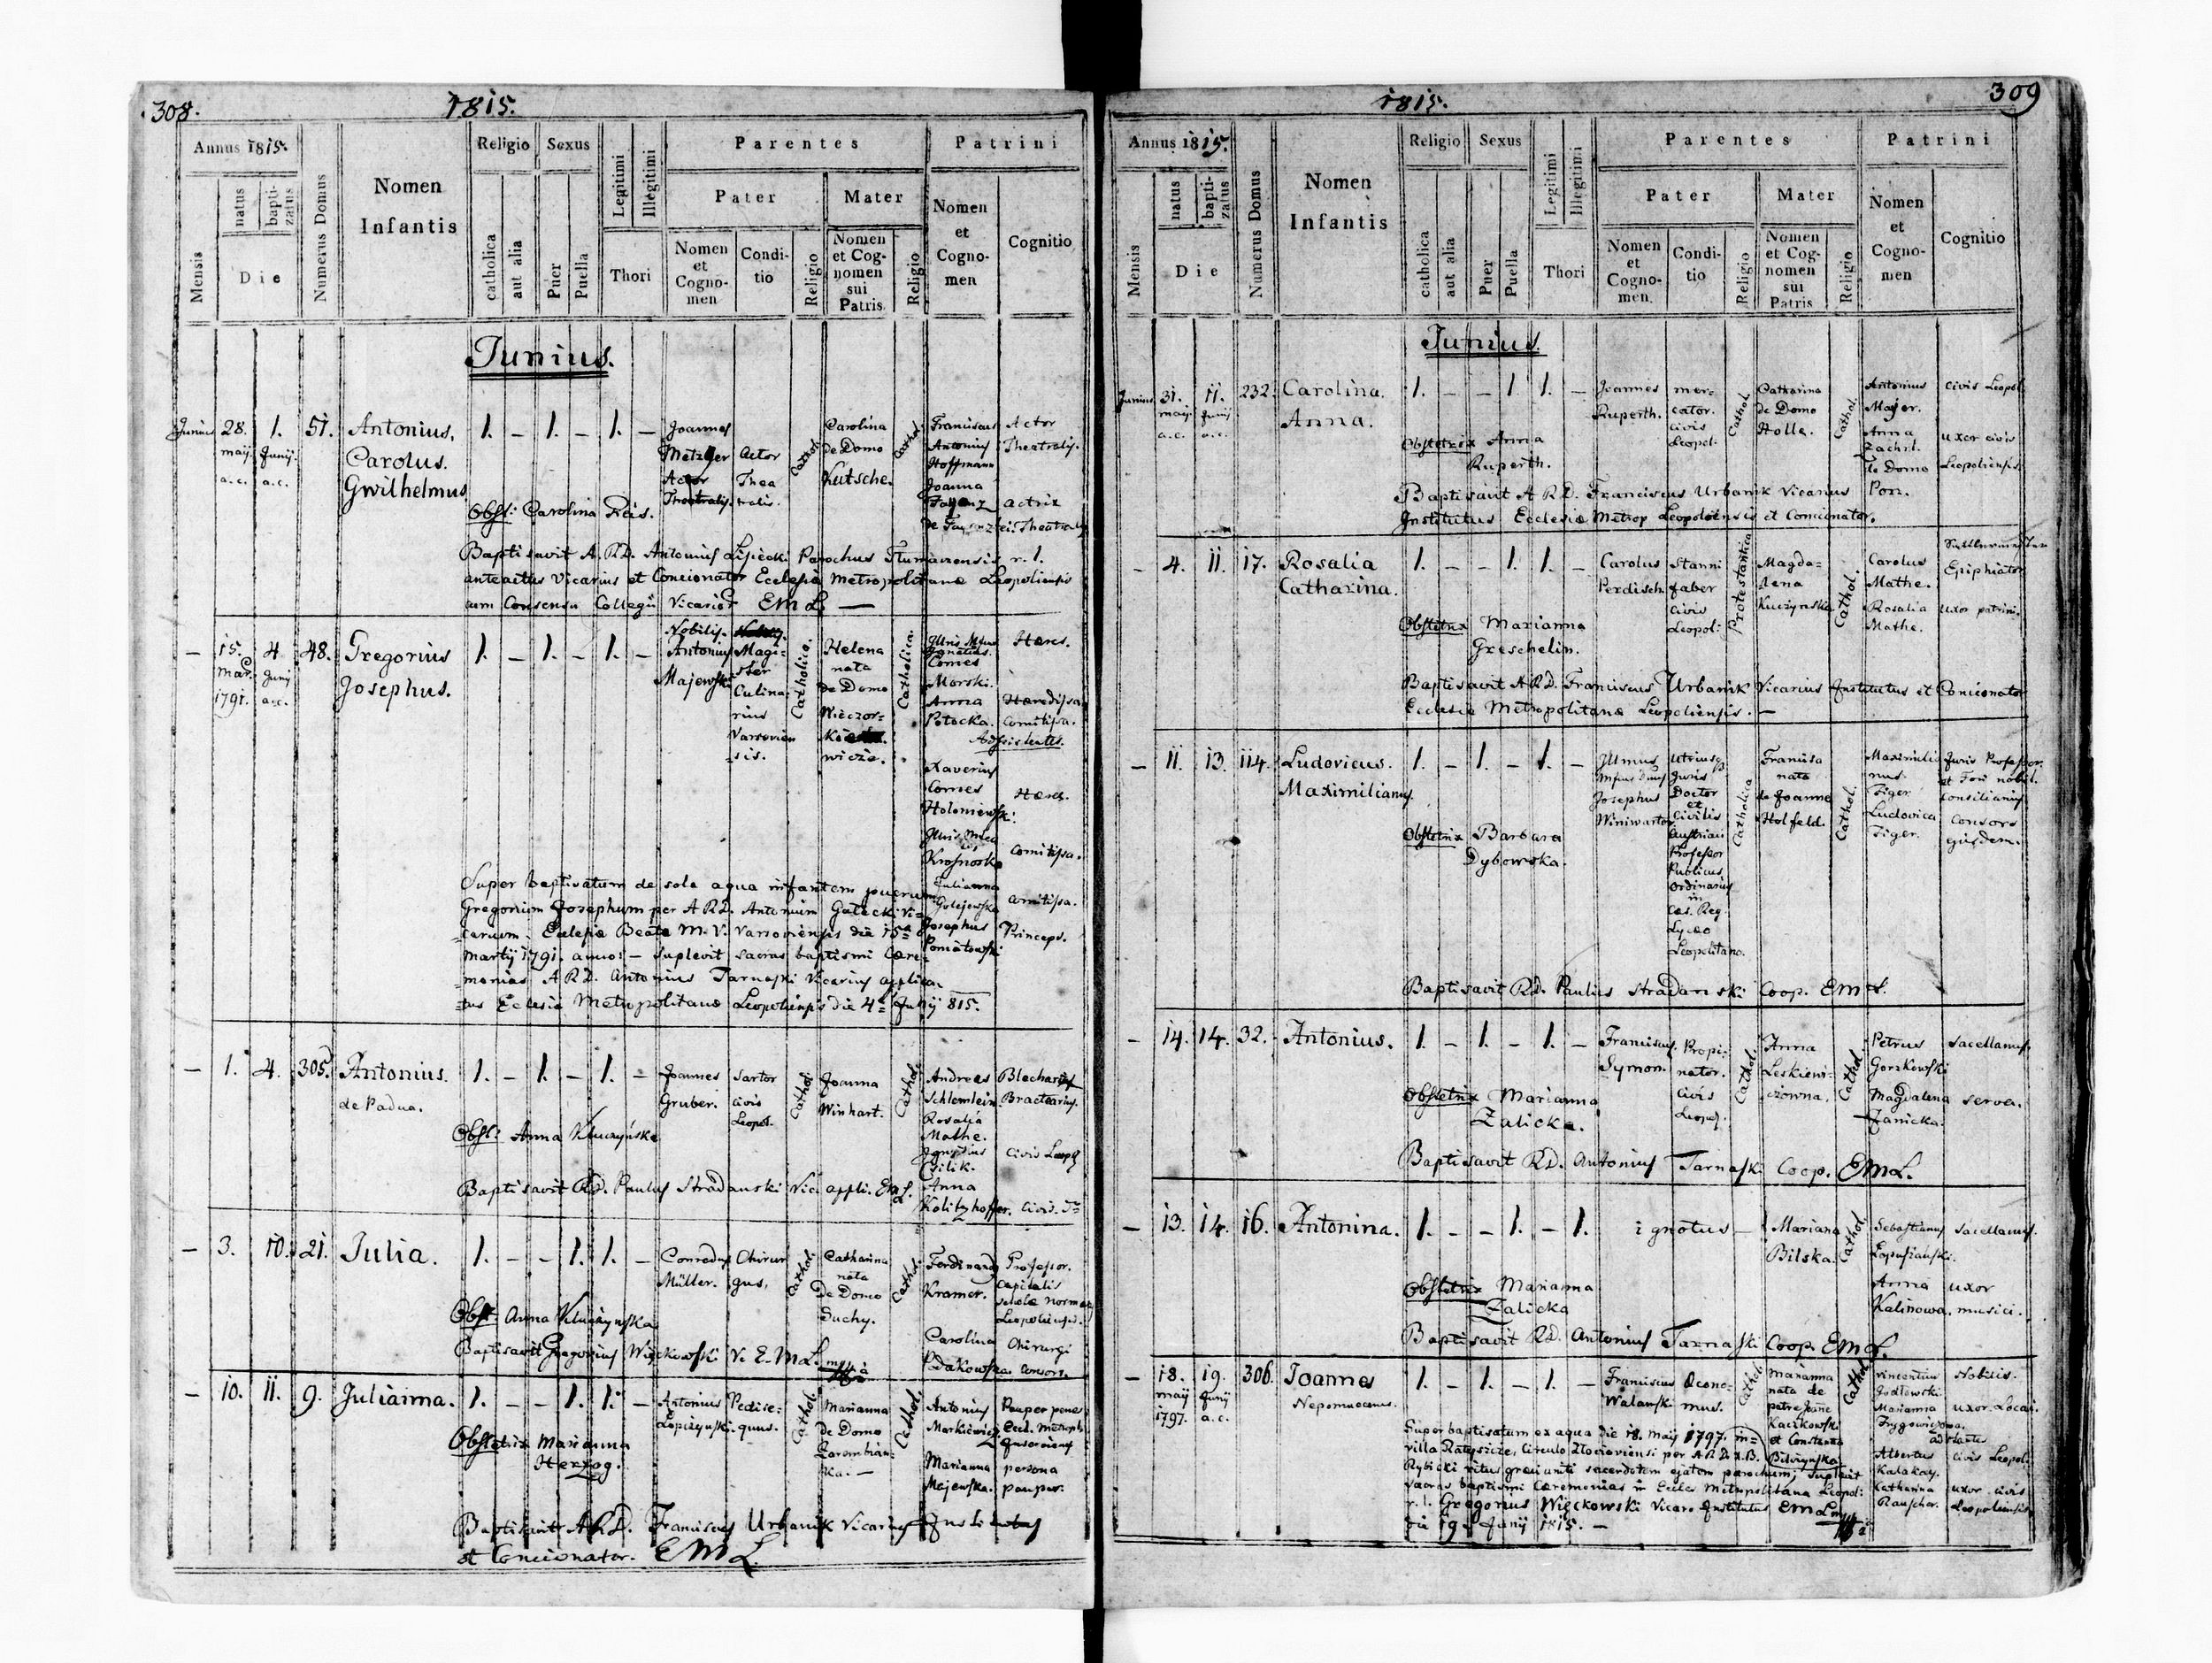 308.
1815.
Annus 1815.
Mensis
natus
bapti-
zatus
Die
Numerus Domus
Nomen
Infantis
Religio
catholica
aut alia
Sexus
Puer
Puella
Legitimi
Illegitimi
Thori
Parentes
Pater
Nomen
et
Cogno-
men
Condi-
tio
Religio
Mater
Nomen
et Cog-
nomen
sui
Patris.
Religio
Patrini
Nomen
et
Cogno-
men
Cognitio
Junius.
Junius 28. maij a.c. 1. Junij a.c. 51. Antonius, Carolus. Gwilhelmus 1. – 1. – 1. –
Joannes Metzger Actor Theatralis.
Actor Theatralis.
Cathol.
Carolina de Domo Kutsche.
Cathol.
Franciscus Antonius Hoffmann
Actor Theatralis.
Joanna
actrix
Obst: Carolina Reis.
Baptisavit A. R.D. Antonius Lipiecki Parochus r. l.
anteactus Vicarius et Concionator Ecclesiæ Metropolitanæ Leopoliensis
cum Consensu Collegii Vicarior EML. —
– 15. Mar. 1791. 4 Junij a.c. 48. Gregorius Josephus. 1. – 1. – 1. –
Nobilis. Antonius Majewski
Magi-
ster
Culina-
rius
Varsovien
sis.
Catholica.
Helena
nata
de Domo
Wieczor-
wicze.
Catholica.
Comes
Morski.
Hæres.
Anna
Potocka.
Hæredissa
Comitissa.
Adsistentes.
Xaverius
Comes
Holoniewski
Hæres.
Krosnoska
Comitissa.
Julianna
Golejewska
Comitissa.
Josephus
Poniatowski
Princeps.
Super baptisatum de sola aqua infantem puerum
Gregorium Josephum per A R.D. Antonium Gałecki Vi-
carium Ecclesiæ Beatæ M. V. Varsoviensis die 15a
Martij 1791. anno: – suplevit sacras baptismi Cære-
monias A R.D. Antonius Tarnaski Vicarius applica-
tus Eclesiæ Metropolitanæ Leopoliensis die 4a Junij 815.
– 1. 4. 305. Antonius. de Padua. 1. – 1. – 1. –
Joannes
Gruber.
Sartor
civis
Leopol.
Cathol.
Joanna
Winhart.
Cathol.
Andreas
Schlemlein.
Bractearius.
Rosalia
Mathe.
Ignatius
civis Leopol
Anna
Kolitzhoffer.
Obst: Anna Kluczyńska
Baptisavit R.D. Paulus Stradanski Vic. appli. EML.
– 3. 10. 21. Julia. 1. – – 1. 1. –
Conradus
Müller.
Chirur
gus.
Cathol.
Catharina
nata
De Domo
Suchy.
Cathol.
Ferdinand
Kramer.
Professor.
Capitalis
scholæ norma
Leopoliens.
Carolina
Chirurgi
consors.
Obst. Anna Kluczynska
Baptisavit Gregorius Więckowski V. E. M L.
– 10. 11. 9. Julianna. 1. – – 1. 1. –
Antonius
Łopiczynski.
Pedise-
quus.
Cathol.
Marianna
de Domo
Zarembian-
ka. —
Cathol.
Antonius
Markiewicz
Pauper penes
Eccl. Metropl.
Marianna
Majewska.
persona
pauper.
Obstetrix Marianna
Herzog.
Baptisavit A R.D. Franciscus Urbanik Vicarius Institutus
et Concionator. EML.
1815.
309
Annus 1815.
Mensis
natus
bapti-
zatus
Die
Numerus Domus
Nomen
Infantis
Religio
catholica
aut alia
Sexus
Puer
Puella
Legitimi
Illegitimi
Thori
Parentes
Pater
Nomen
et
Cogno-
men.
Condi-
tio
Religio
Mater
Nomen
et Cog-
nomen
sui
Patris
Religio
Patrini
Nomen
et
Cogno-
men
Cognitio
Junius.
Junius 31. maij a.c. 11. Junij a.c. 232. Carolina. Anna. 1. – – 1. 1. –
Joannes
Ruperth.
mer-
cator.
civis
Leopol.
Cathol.
Catharina
de Domo
Holle.
Cathol.
Antonius
Majer.
civis Leopol.
Anna
Zachrl.
de Domo
Porr.
uxor civis
Leopoliensis.
Obstetrix Anna
Ruperth.
Baptisavit A R.D. Franciscus Urbanik Vicarius
Institutus Ecclesiæ Metrop Leopoliensis et Concionator.
– 4. 11. 17. Rosalia Catharina. 1. – – 1. 1. –
Carolus
Perdisch.
Stanni
faber
civis
Leopol:
Protestantica
Magda-
lena
Kuczynska
Cathol.
Carolus
Mathe.
Epiphiator
Rosalia
Mathe.
uxor patrini.
Obstetrix Marianna
Greschelin.
Baptisavit A R.D. Franciscus Urbanik Vicarius Institutus et Concionator
Ecclesiæ Metropolitanæ Leopoliensis. —
– 11. 13. 114. Ludovicus. Maximilianus. 1. – 1. – 1. –
Josephus
Winiwarter
utriusq
Juris
Doctor
et
Civilis
Austriaci
Professor
Publicus
ordinarius
in
Cæs. Reg.
Lyceo
Leopolitano.
Catholica
Francisca
nata
de Joanne
Holfeld.
Cathol.
Maximilia
nus
Füger
Juris Professor.
et Fori nobil.
consiliarius
Ludovica
Füger.
Consors
ejusdem.
Obstetrix Barbara
Dybowska.
Baptisavit R.D. Paulus Stradanski Coop. EML.
– 14. 14. 32. Antonius. 1. – 1. – 1. –
Franciscus.
Symon.
Propi-
nator.
civis
Leopol.
Cathol.
Anna
Leskiewi-
czowna.
Cathol.
Petrus
Gorzkowski
sacellanus.
Magdalena
Janicka.
serva.
Obstetrix Marianna
Zalicka.
Baptisavit R.D. Antonius Tarnaski Coop. EML.
– 13. 14. 16. Antonina. 1. – – 1. – 1.
ignotus –
Mariana
Bilska.
Cathol.
Sebastianus
Łopuszanski.
sacellanus.
Anna
Kalinowa.
uxor
musici.
Obstetrix Marianna
Zalicka
Baptisavit R.D. Antonius Tarnaski Coop. EML.
– 18. maij 1797. 19. Junij a.c. 306. Joannes Nepomucenus. 1. – 1. – 1. –
Franciscus
Walanski
Œcono-
mus.
Cathol.
Marianna
nata de
patre Joanne
Kaczkowski
et Constantia
Cathol.
Vincentius
Godlewski
Nobilis.
Marianna
uxor Locai.
Albertus
Kalakay.
civis Leopoli
Catharina
Rauscher.
uxor civis
Leopoliensis
Super baptisatum ex aqua die 18. maij 1797. in
villa Circulo Złoczoviensi per A. R.D.
Rybicki ritus græci uniti sacerdotem ejatem parochum; suplevit
sacras baptismi Cæremonias in Eccles Metropolitana Leopol:
r. l. Gregorius Więckowski Vicar. Institutus EML
die 19. Junij 1815. —